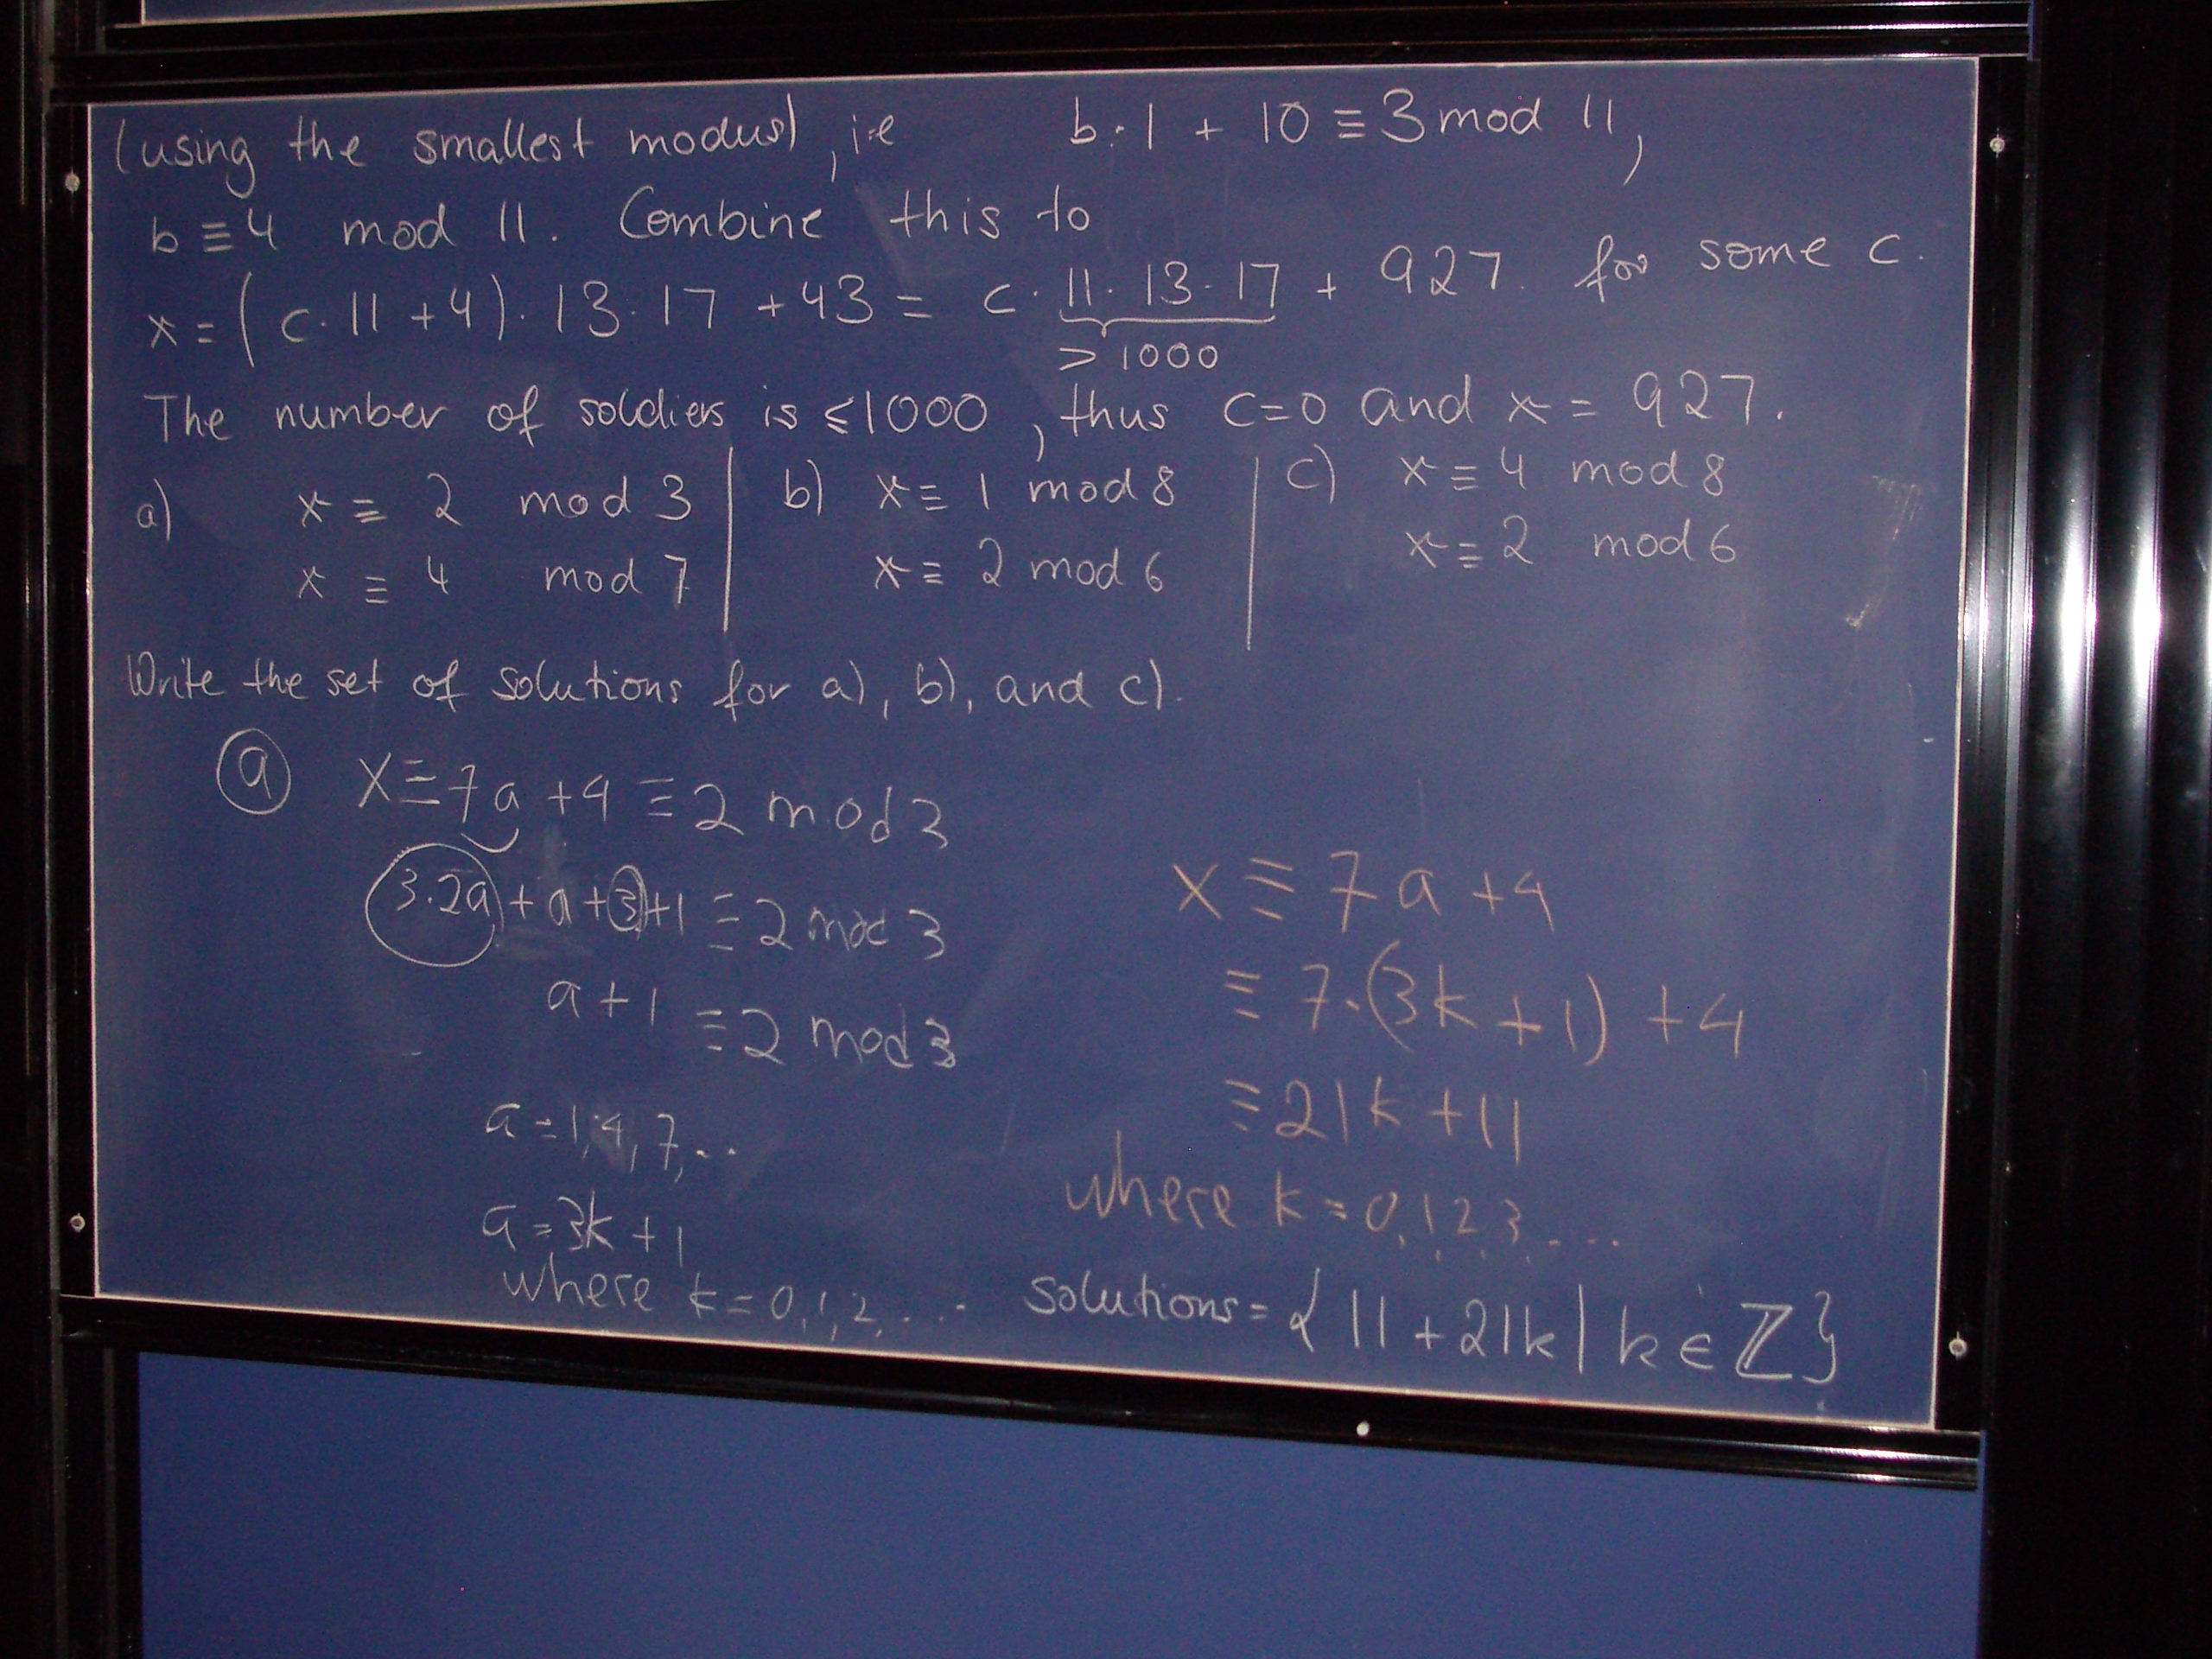 (using the smallest modus), i.e b·1 + 10 ≡ 3 mod 11,
b ≡ 4 mod 11. Combine this to
x = (c·11 + 4)·13·17 + 43 = c·11·13·17 + 927. for some c.
> 1000
The number of soldiers is ≤ 1000, thus c=0 and x = 927.
a) x ≡ 2 mod 3 | b) x ≡ 1 mod 8 | c) x ≡ 4 mod 8
x ≡ 4 mod 7 | x ≡ 2 mod 6 | x ≡ 2 mod 6
Write the set of solutions for a), b), and c).
ⓐ x ≡ 7a + 4 ≡ 2 mod 3
3·2a + a + 3 + 1 ≡ 2 mod 3
a + 1 ≡ 2 mod 3
a = 1, 4, 7, ..
a = 3k + 1
where k = 0, 1, 2, ...
x ≡ 7a + 4
≡ 7·(3k + 1) + 4
≡ 21k + 11
where k = 0, 1, 2, 3, ....
Solutions = { 11 + 21k | k ∈ ℤ }